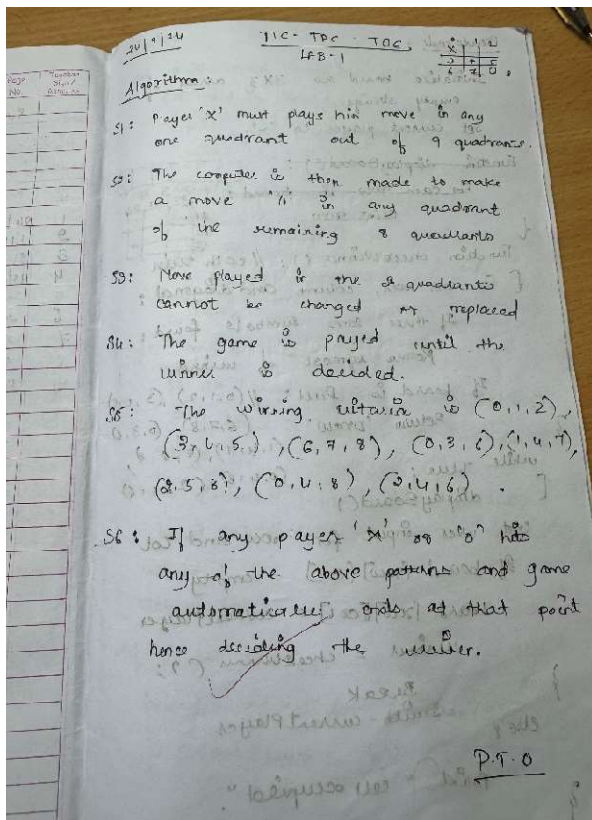 24/9/24
TIC - TAC - TOE
LAB-1
Page No.
Algorithm:
S1: Player 'X' must plays his move in any
one quadrant out of 9 quadrants.
S2: The computer is then made to make
a move in any quadrant
of the remaining 8 quadrants
S3: Move played in the 2 quadrants
cannot be changed or replaced
S4: The game is played until the
winner is decided.
S5: The winning criteria is (0,1,2),
(3,4,5), (6,7,8), (0,3,6), (1,4,7),
(2,5,8), (0,4,8), (2,4,6).
S6: If any player 'X' or "o" has
any of the above patterns and game
automatically ends at that point
hence deciding the winner.
P.T.O